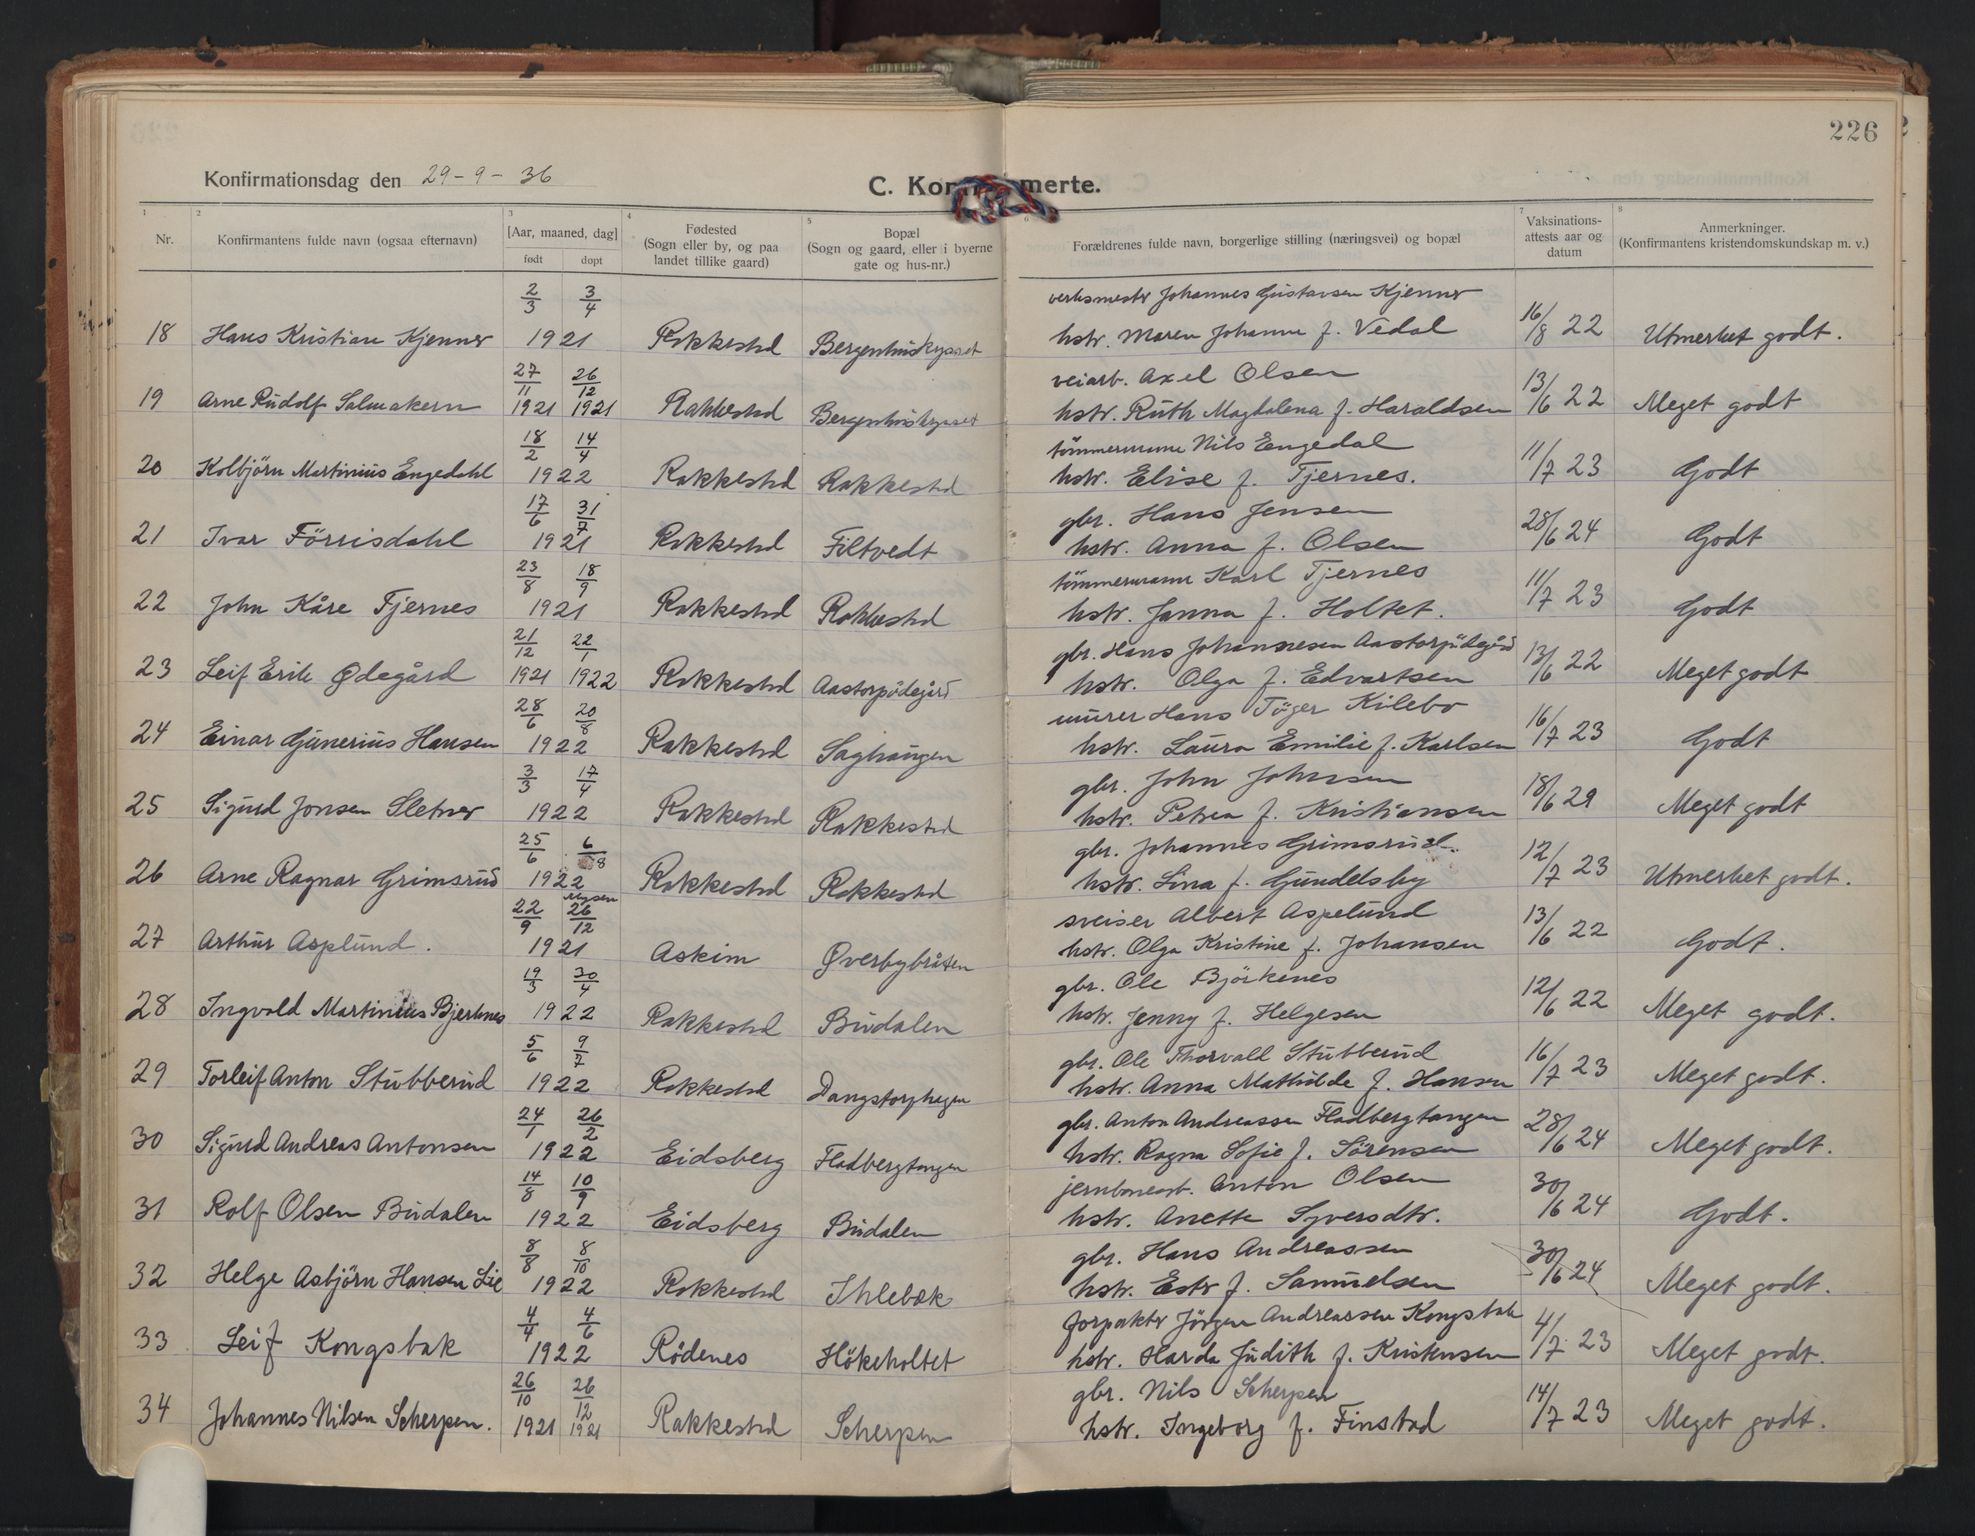 226
Konfirmationsdag den 29-9-36
C. Konfirmerte.
1 2 3 4 5 6 7 8
Nr. Konfirmantens fulde navn (ogsaa efternavn) [Aar, maaned, dag] født døpt Fødested (Sogn eller by, og paa landet tillike gaard) Bopæl (Sogn og gaard, eller i byerne gate og hus-nr.) Forældrenes fulde navn, borgerlige stilling (næringsvei) og bopæl Vaksinations-attests aar og datum Anmerkninger. (Konfirmantens kristendomskundskap m. v.)
2/3 3/4 verksmester Johannes Gustavsen Kjenner
18 Hans Kristian Kjenner 1921 Rakkestad hstr. Maren Johanne f. Vedal 16/8 22 Utmerket godt.
27/11 26/12 veiarb. Axel Olsen
19 Arne Rudolf Salmakern 1921 1921 Rakkestad hstr. Ruth Magdalena f. Haraldsen 13/6 22 Meget godt
18/2 14/4 tömmermann Nils Engedal
20 Kolbjörn Martinius Engedahl 1922 Rakkestad Rakkestad hstr. Elise f. Tjernes. 11/7 23 Godt
17/6 31/7 gbr. Hans Jensen
21 Ivar Förrisdahl 1921 Rakkestad Filtvedt hstr. Anna f. Olsen 28/6 24 Godt
23/8 18/9 tömmermann Karl Tjernes
22 John Kåre Tjernes 1921 Rakkestad Rakkestad hstr. Janna f. Holtet. 11/7 23 Godt
21/12 22/1 gbr. Hans Johannesen Aastorpödegård
23 Leif Erik Ødegård 1921 1922 Rakkestad Aastorpödegård hstr. Olga f. Edvartsen 13/6 22 Meget godt
28/6 20/8 murer Hans Töger Kilebo
24 Einar Gunerius Hansen 1922 Rakkestad Saghaugen hstr. Laura Emilie f. Karlsen 16/7 23 Godt
3/3 17/4 gbr. John Johnsen
25 Sigurd Jonsen Sletner 1922 Rakkestad Rakkestad hstr. Petrea f. Kristiansen 18/6 29 Meget godt
25/6 6/8 gbr. Johannes Grimsrud.
26 Arne Ragnar Grimsrud 1922 Rakkestad Rakkestad hstr. Lina f. Gundelsby 12/7 23 Utmerket godt.
22/9 Mysen 26/12 sveiser Albert Aspelund
27 Arthur Asplund. 1921 Askim Øverbybråten hstr. Olga Kristine f. Johansen 13/6 22 Godt.
19/3 30/4 gbr. Ole Björkenes
28 Ingvald Martinius Bjerknes 1922 Rakkestad Budalen hstr. Jenny f. Helgesen 12/6 22 Meget godt.
5/6 9/7 gbr. Ole Thorvald Stubberud
29 Torleif Anton Stubberud 1922 Rakkestad Dangstorphagen hstr. Anna Mathilde f. Hansen 16/7 23 Meget godt.
24/1 26/2 gbr. Anton Andreassen Fladbergtangen
30 Sigurd Andreas Antonsen 1922 Eidsberg Fladbergtangen hstr. Ragna Sofie f. Sörensen 28/6 24 Meget godt.
14/8 10/9 jernbanearb. Anton Olsen
31 Rolf Olsen Budalen 1922 Eidsberg Budalen hstr. Anette Syversdtr. 30/6 24 Godt.
8/8 8/10 gbr. Hans Andreassen
32 Helge Asbjörn Hansen Lie 1922 Rakkestad Ihlebæk hstr. Ester f. Samuelsen 30/6 24 Meget godt.
4/4 4/6 forpakter Jörgen Andreassen Kongsbak
33 Leif Kongsbak 1922 Rödenes Hökeholtet hstr. Harda Judith f. Kristensen 4/7 23 Meget godt.
26/10 26/12 gbr. Nils Scherpen
34 Johannes Nilsen Scherpen. 1921 1921 Rakkestad Scherpen hstr. Ingeborg f. Finstad 14/7 23 Meget godt.